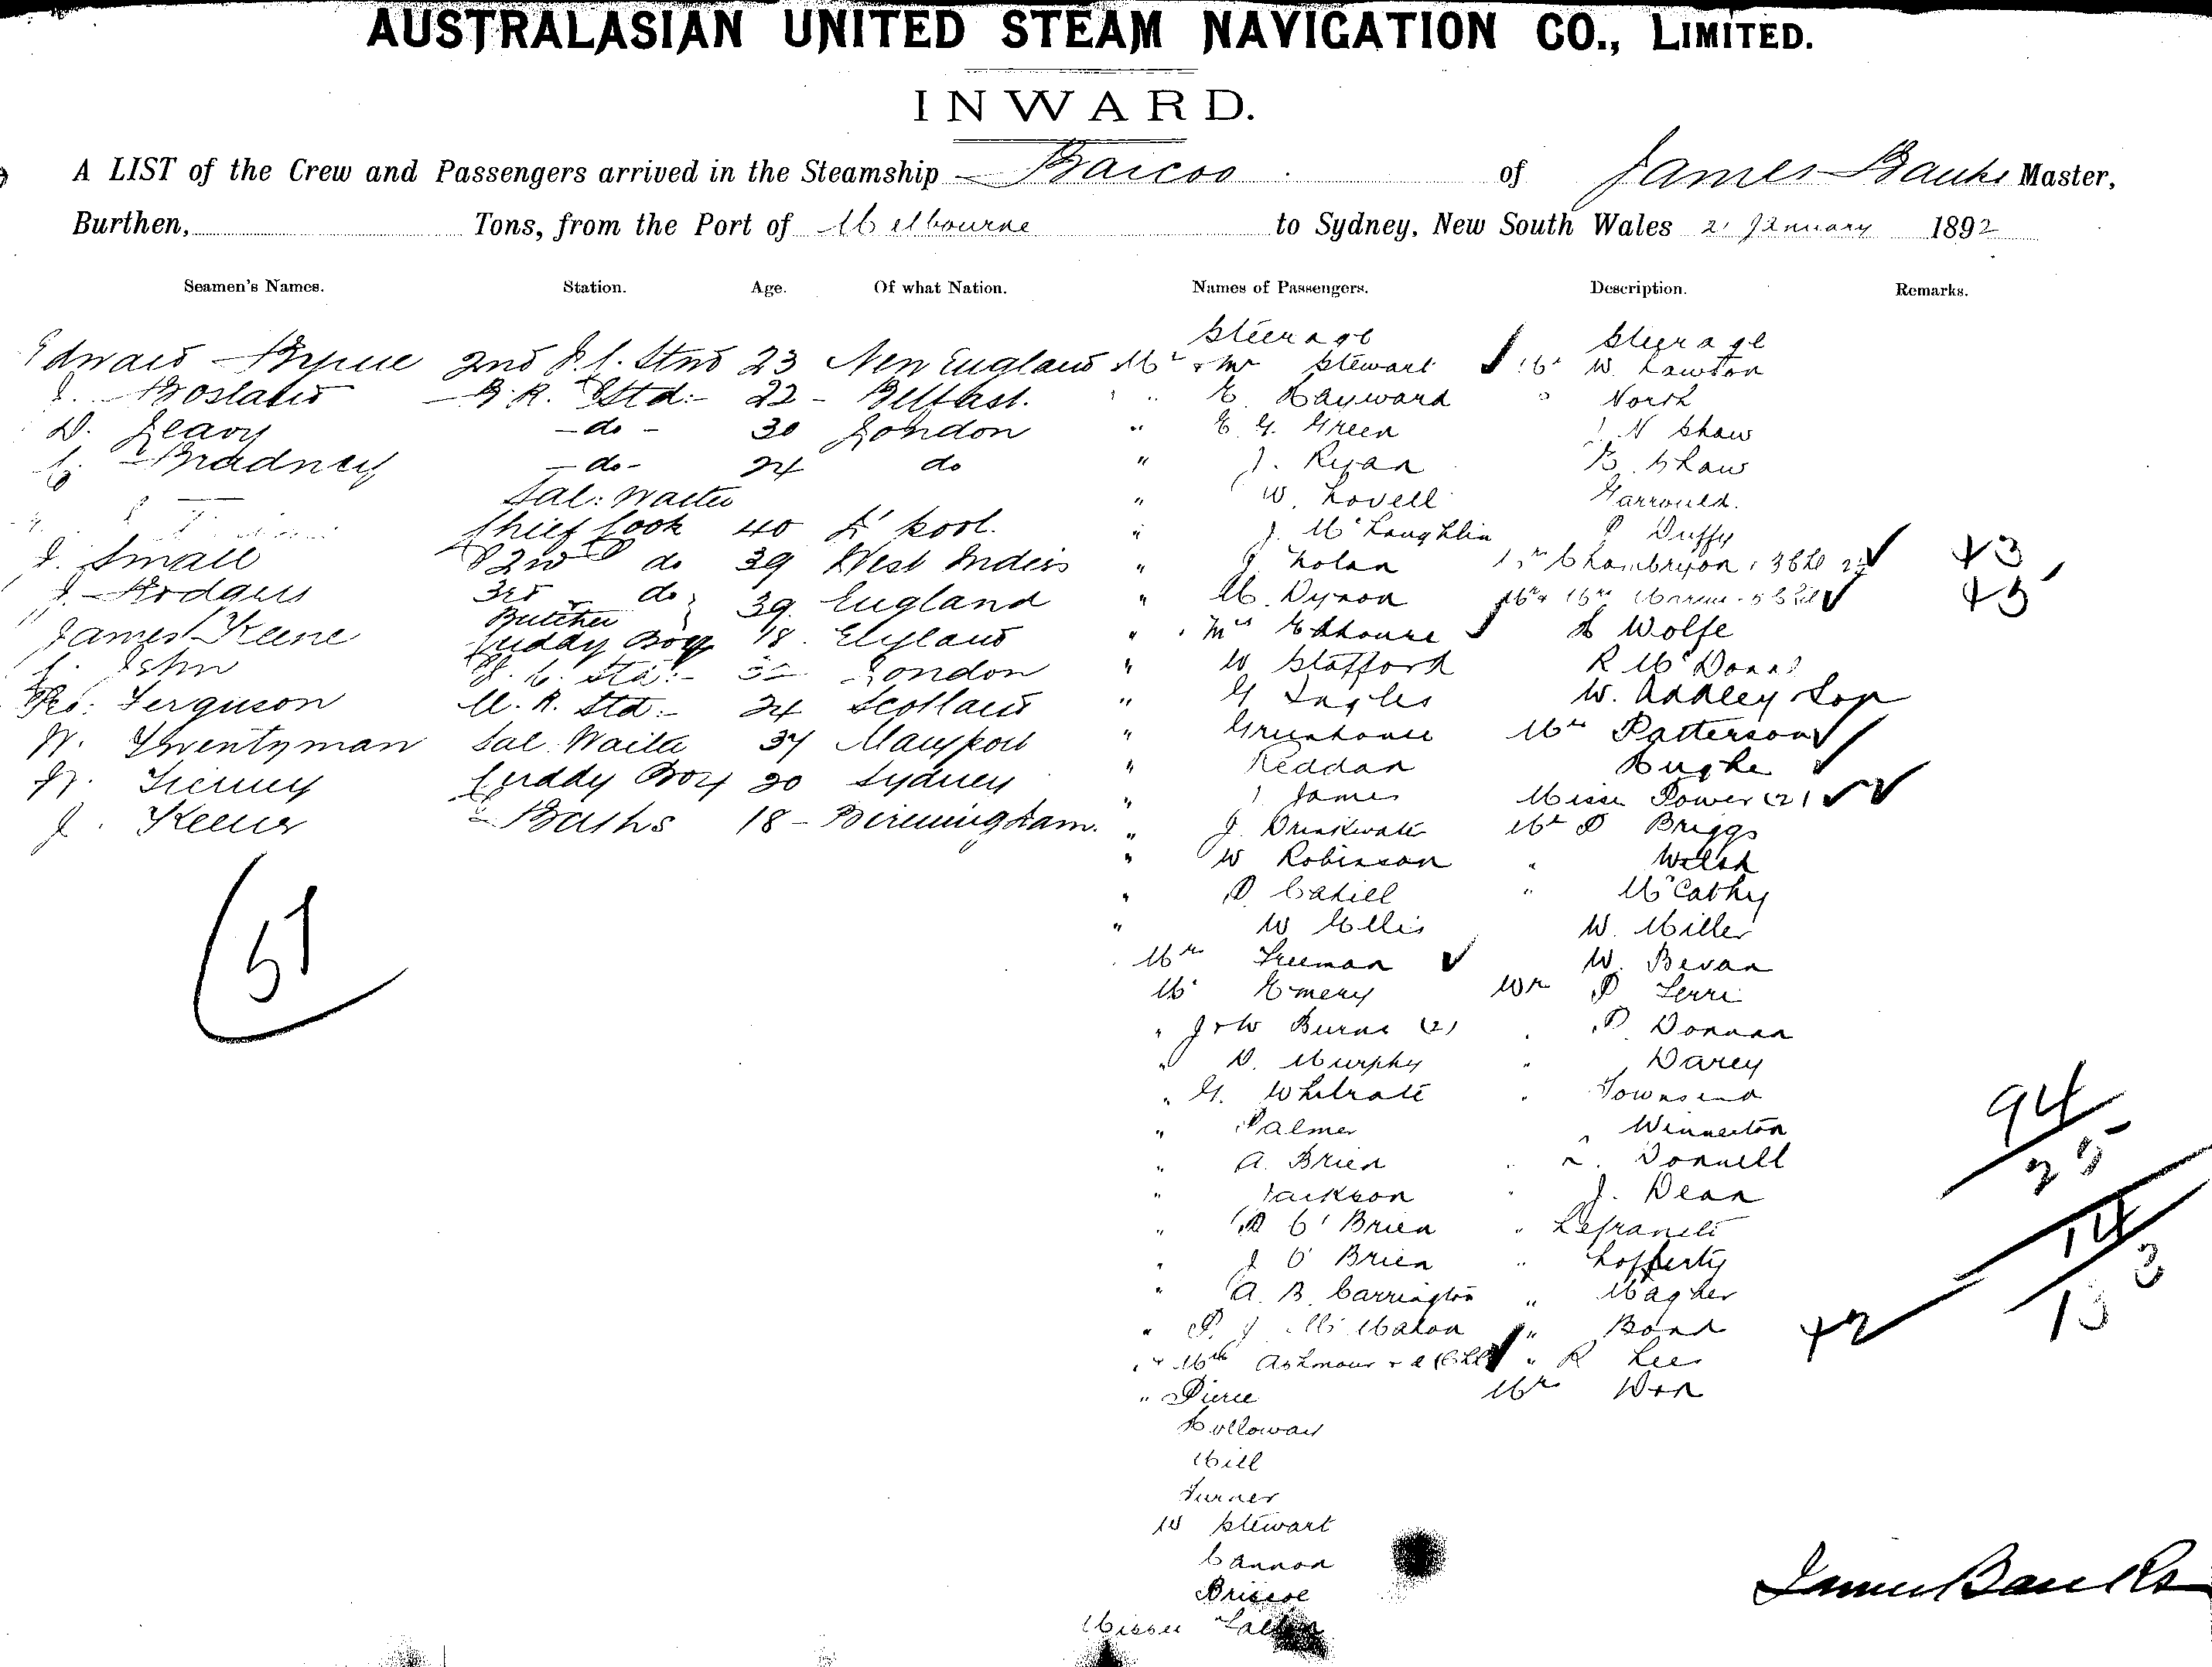 AUSTRALASIAN UNITED STEAM NAVIGATION CO., LIMITED.
INWARD.
A LIST of the Crew and Passengers arrived in the Steamship Barcoo of James Banks Master,
Burthen, Tons, from the Port of Melbourne to Sydney, New South Wales 21 January 1892
Seamen's Names. Station. Age. Of what Nation. Names of Passengers. Description. Remarks.
Steerage Steerage
Edward Byrne 2nd Std 23 New England Mr & Mrs Stewart Mr W. Lawton
B.R. Std:- 22 - Belfast. " E. Hayward " North
D. Leavy - do - 30 London " E. G. Green J N Shaw
Bradney - do - 24 do " J. Ryan E. Shaw
Sal: Waiter " W. Lovell Garrould.
Chief Cook 40 L'pool. " J. McLaughlin P Duffy
J. Small 2nd do 39 West Indies " J Nolan 3 Chl +3
J. Hodges 3rd do 39. England " M. Dyson Mr & Mrs 5 Chl +5
Butcher
James Keene Cuddy Boy 18. England " Mrs H Wolfe
John London " W Stafford R McDonal
Geo: Ferguson M. R. Std:- 24 Scotland " G Ingles W. Hadley Sop
W. Twentyman Sal. Waiter 37 Maryport " Greenhouse Mrs Patterson
W. Tierney Cuddy Boy 20 Sydney " Reddan Hughe
J. Keene Baths 18 - Birmingham. " J. James Misses Power (2)
" J. Drinkwater Mr P Briggs
" W Robinson " Welsh
" P. Cahill " McCathy
" W Ellis W. Miller
51 Mrs Freeman W. Bevan
Mr Emery Mr P Terri
" J & W Burns (2) P. Donnan
" D. Murphy " Darcy
" G. Whitrate " Townsend
94
" Palmer " Winnerton
" A. Brien " Donnell
25
" Jackson " J. Dean
" P O'Brien " Lefraneti
14
" J O'Brien " Lofferty
" A. B. Carrington " Magher
133
" P. J McMahon " Bond +2
" Mrs Ashmour & 2 Chl " R Lees
" Pierce Mr Won
Holloway
Mill
Turner
W Stewart
Cannon
Briscoe
James Banks
Misses